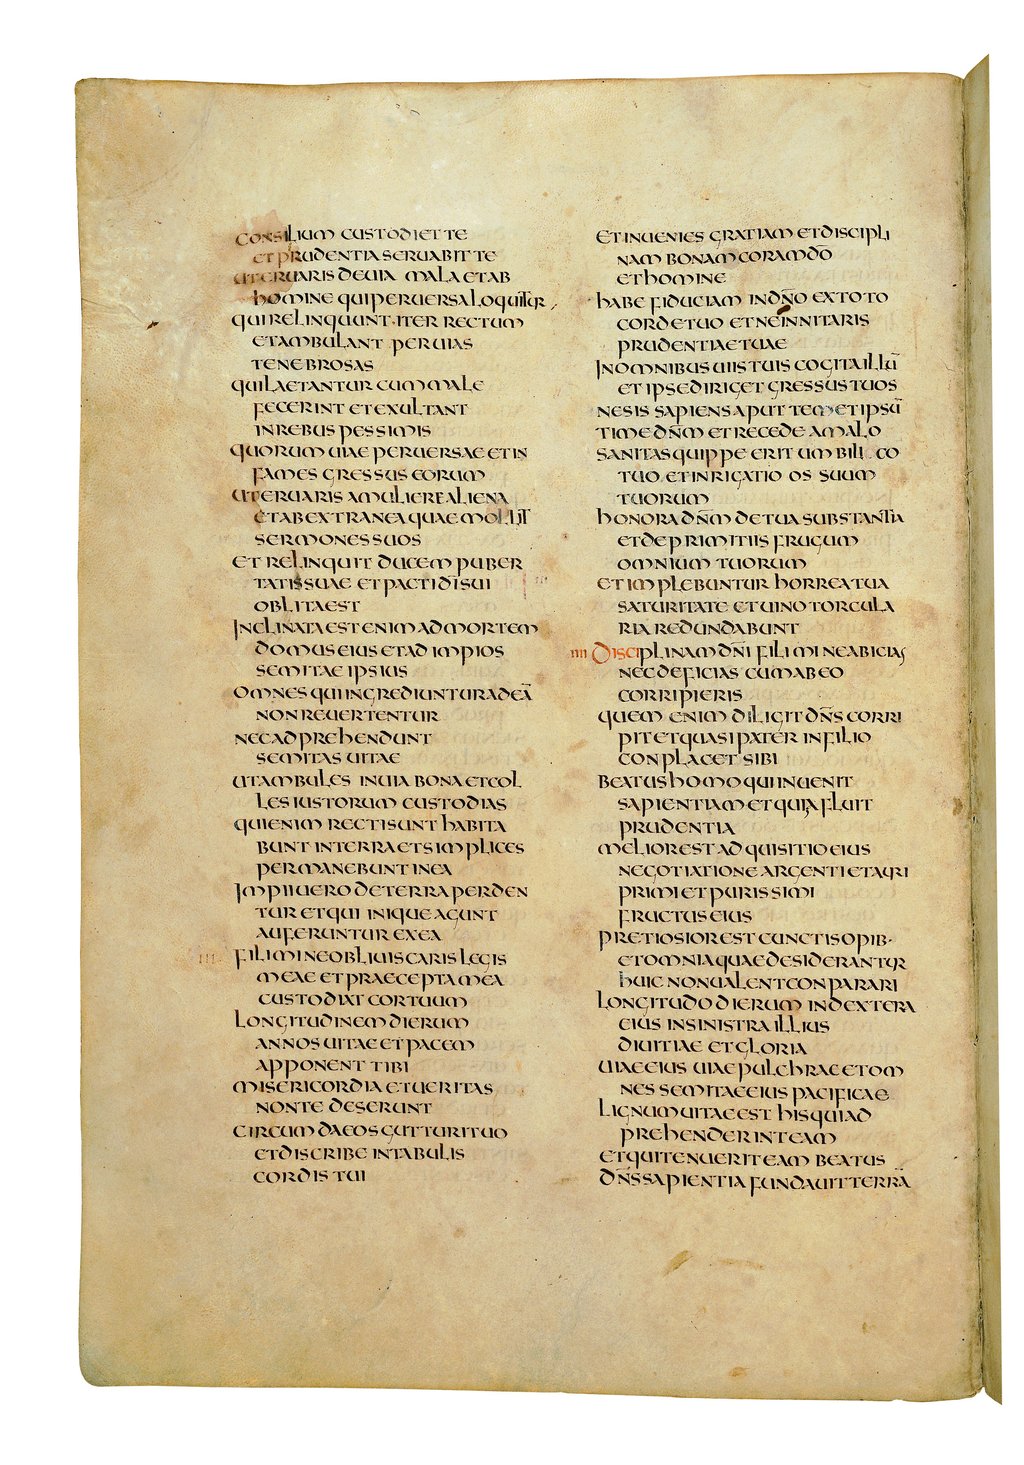 CONSILIUM CUSTODIET TE
ET PRUDENTIA SERUABIT TE
UT ERUARIS DE UIA MALA ET AB
HOMINE QUI PERUERSA LOQUITUR
QUI RELINQUUNT ITER RECTUM
ET AMBULANT PER UIAS
TENEBROSAS
QUI LAETANTUR CUM MALE
FECERINT ET EXULTANT
IN REBUS PESSIMIS
QUORUM UIAE PERUERSAE ET IN
FAMES GRESSUS EORUM
UT ERUARIS A MULIERE ALIENA
ET AB EXTRANEA QUAE MOLLIT
SERMONES SUOS
ET RELINQUIT DUCEM PUBER
TATIS SUAE ET PACTI DI SUI
OBLITA EST
INCLINATA EST ENIM AD MORTEM
DOMUS EIUS ET AD IMPIOS
SEMITAE IPSIUS
OMNES QUI INGREDIUNTUR AD EĀ
NON REUERTENTUR
NEC ADPREHENDUNT
SEMITAS UITAE
UT AMBULES IN UIA BONA ET COL
LES IUSTORUM CUSTODIAS
QUI ENIM RECTI SUNT HABITA
BUNT IN TERRA ET SIMPLICES
PERMANEBUNT IN EA
IMPII UERO DE TERRA PERDEN
TUR ET QUI INIQUE AGUNT
AUFERUNTUR EX EA
III FILI MI NE OBLIUISCARIS LEGIS
MEAE ET PRAECEPTA MEA
CUSTODIAT COR TUUM
LONGITUDINEM DIERUM
ANNOS UITAE ET PACEM
APPONENT TIBI
MISERICORDIA ET UERITAS
NON TE DESERUNT
CIRCUMDA EOS GUTTURI TUO
ET DISCRIBE IN TABULIS
CORDIS TUI
ET INUENIES GRATIAM ET DISCIPLI
NAM BONAM CORAM DŌ
ET HOMINE
HABE FIDUCIAM IN DÑO EX TOTO
CORDE TUO ET NE INNITARIS
PRUDENTIAE TUAE
IN OMNIBUS UIIS TUIS COGITA ILLŪ
ET IPSE DIRIGET GRESSUS TUOS
NE SIS SAPIENS APUT TEMET IPSŪ
TIME DÑM ET RECEDE A MALO
SANITAS QUIPPE ERIT UMBILICO
TUO ET INRIGATIO OSSUUM
TUORUM
HONORA DÑM DE TUA SUBSTANTIA
ET DE PRIMITIIS FRUGUM
OMNIUM TUORUM
ET IMPLEBUNTUR HORREA TUA
SATURITATE ET UINO TORCULA
RIA REDUNDABUNT
IIII DISCIPLINAM DÑI FILI MI NE ABICIAS
NEC DEFICIAS CUM AB EO
CORRIPIERIS
QUEM ENIM DILIGIT DÑS CORRI
PIT ET QUASI PATER IN FILIO
CONPLACET SIBI
BEATUS HOMO QUI INUENIT
SAPIENTIAM ET QUI AFLUIT
PRUDENTIA
MELIOR EST ADQUISITIO EIUS
NEGOTIATIONE ARGENTI ET AURI
PRIMI ET PURISSIMI
FRUCTUS EIUS
PRETIOSIOR EST CUNCTIS OPIB·
ET OMNIA QUAE DESIDERANTUR
HUIC NON UALENT CONPARARI
LONGITUDO DIERUM IN DEXTERA
EIUS IN SINISTRA ILLIUS
DIUITIAE ET GLORIA
UIAE EIUS UIAE PULCHRAE ET OM
NES SEMITAE EIUS PACIFICAE
LIGNUM UITAE EST HIS QUI AD
PREHENDERINT EAM
ET QUI TENUERIT EAM BEATUS
DÑS SAPIENTIA FUNDAUIT TERRĀ